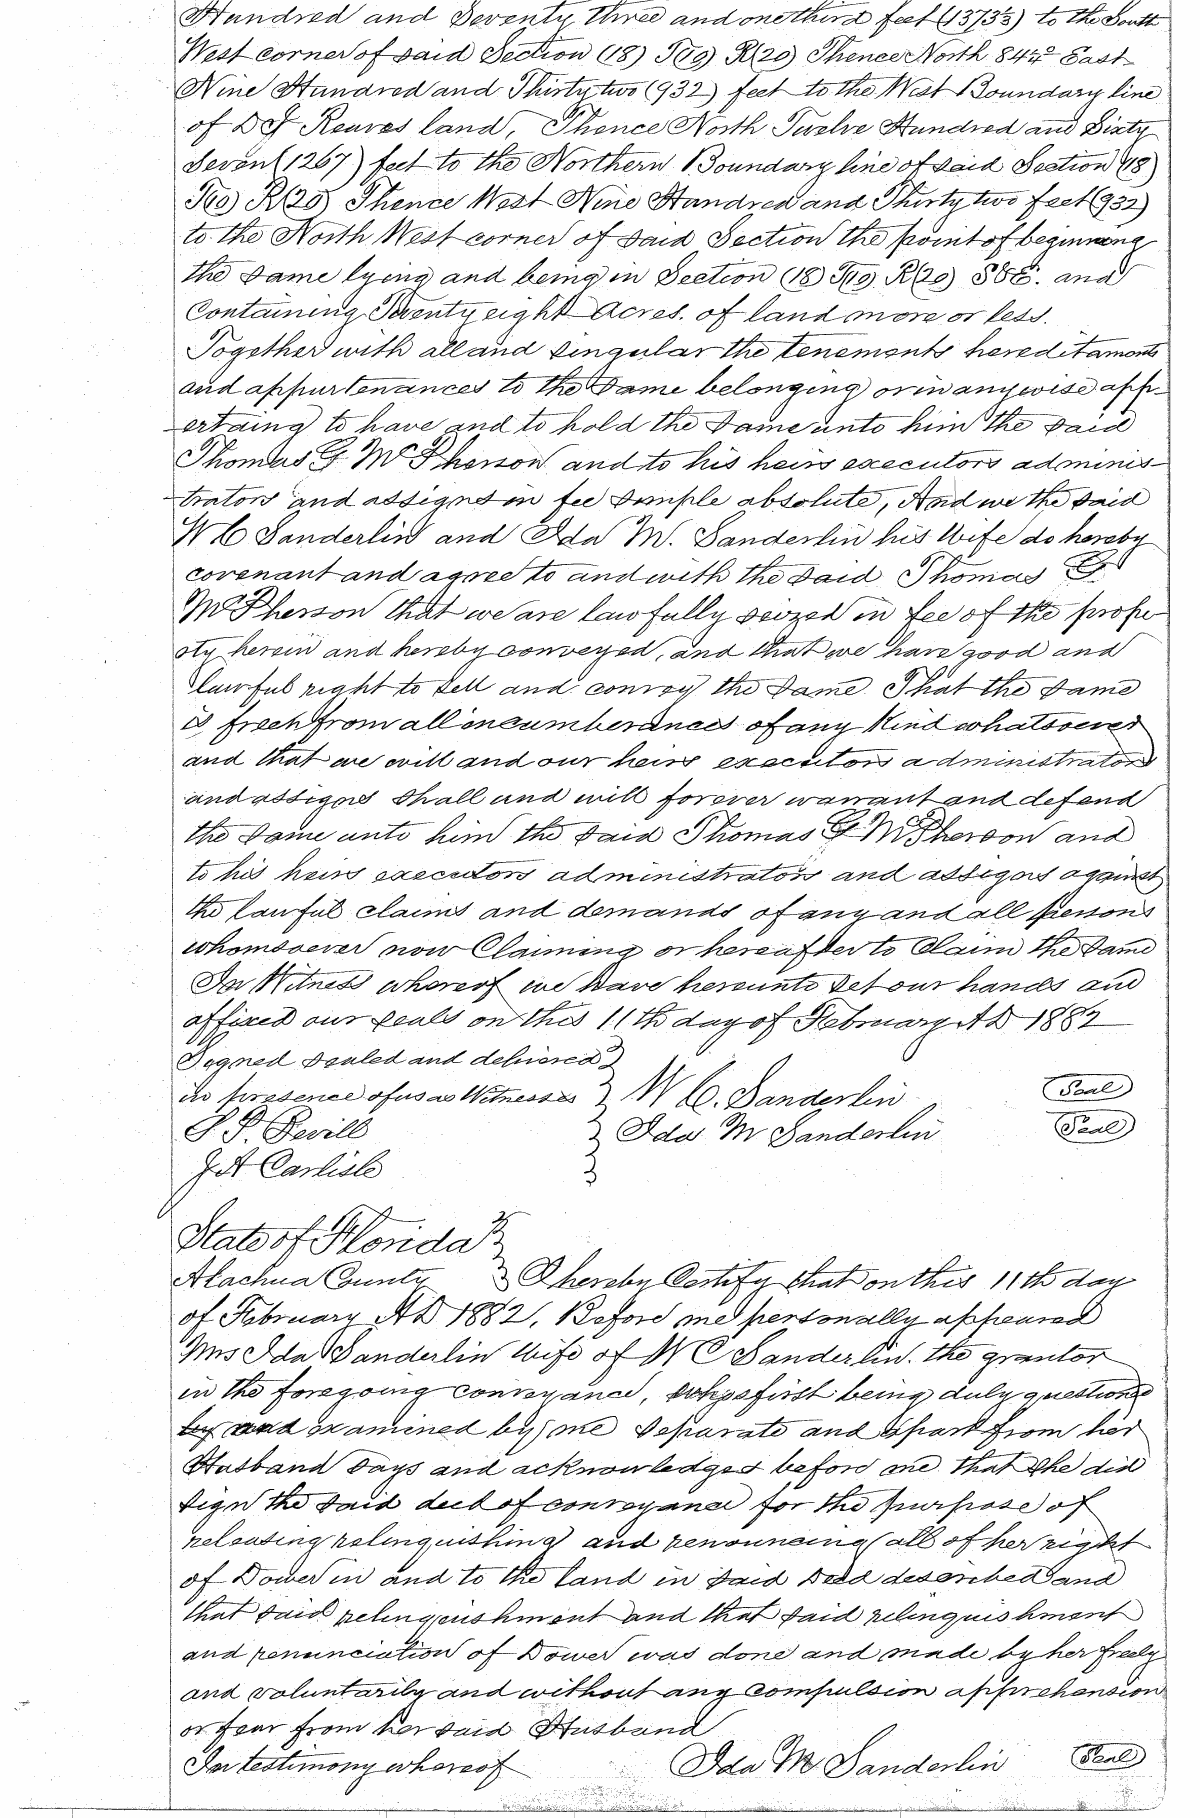 Hundred and Seventy three and one third feet (1373⅓) to the South
West corner of said Section (18) T(10) R(20) Thence North 84½° East
Nine Hundred and Thirty two (932) feet to the West Boundary line
of D J Reaves land, Thence North Twelve Hundred and Sixty
Seven (1267) feet to the Northern Boundary line of said Section (18)
T(10) R(20) Thence West Nine Hundred and Thirty two feet (932)
to the North West corner of said Section the point of beginning
the same lying and being in Section (18) T(10) R(20) S&E. and
Containing Twenty eight Acres. of land more or less.
Together with all and singular the tenements hereditaments
and appurtenances to the same belonging or in anywise app-
ertaing to have and to hold the same unto him the said
Thomas G McPherson and to his heirs executors adminis-
trators and assigns in fee simple absolute, And we the said
W C Sanderlin and Ida M. Sanderlin his Wife do hereby
covenant and agree to and with the said Thomas G
McPherson that we are lawfully seized in fee of the prope
rty herein and hereby conveyed, and that we have good and
lawful right to sell and convey the same. That the same
is free from all incumberances of any Kind whatsoever
and that we will and our heirs executors administrators
and assigns shall and will forever warrant and defend
the same unto him the said Thomas G McPherson and
to his heirs executors administrators and assigns against
the lawful claims and demands of any and all persons
whomsoever now Claiming or hereafter to Claim the same
In Witness whereof we have hereunto set our hands and
affixed our seals on this 11th day of February AD 1882
Signed sealed and delivered
in presence of us as Witnesses W C. Sanderlin Seal
Ida M Sanderlin Seal
J A Carlisle
State of Florida
Alachua County I hereby Certify that on this 11th day
of February AD 1882, Before me personally appeared
Mrs Ida Sanderlin Wife of W C Sanderlin. the grantor
in the foregoing conveyance, who first being duly questioned
by and examined by me separate and apart from her
Husband says and acknowledges before me that She did
sign the said deed of conveyance for the purpose of
releasing relinquishing and renouncing all of her right
of Dower in and to the land in said Deed described and
that said relinquishment and that said relinquishment
and renunciation of Dower was done and made by her freely
and voluntarily and without any compulsion apprehension
or fear from her said Husband
In testimony whereof Ida M Sanderlin Seal